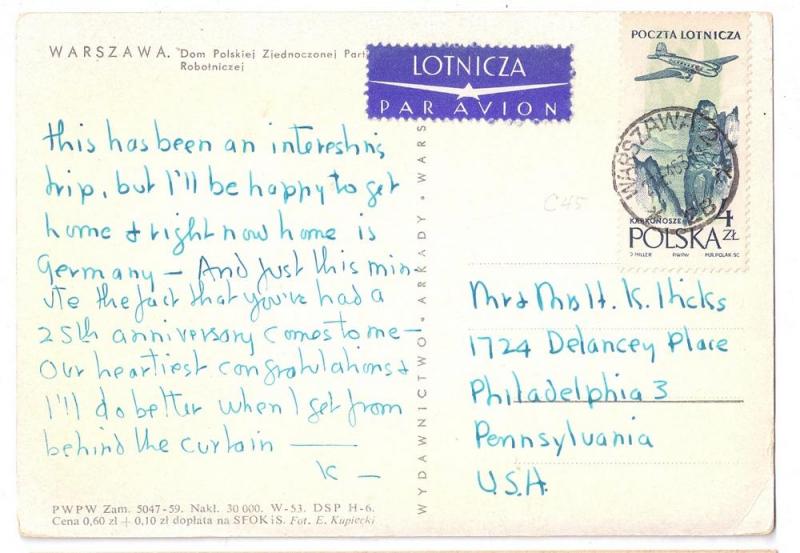 WARSZAWA. Dom Polskiej Zjednoczonej Part
Robotniczej
LOTNICZA
PAR AVION
POCZTA LOTNICZA
WARSZAWA
KARKONOSZE
4 ZŁ
POLSKA
D HILLER PWPW
C45
this has been an interesting
trip, but I'll be happy to get
home & right now home is
Germany – And just this min
ute the fact that you've had a
25th anniversary comes to me –
Our heartiest congratulations &
I'll do better when I get from
behind the curtain —
K –
WYDAWNICTWO • ARKADY • WARS
Mr & Mrs H. K. Hicks
1724 Delancey Place
Philadelphia 3
Pennsylvania
U.S.A.
PWPW Zam. 5047-59. Nakł. 30 000. W-53. DSP H-6.
Cena 0,60 zł + 0,10 zł dopłata na SFOKiS. Fot. E. Kupiecki